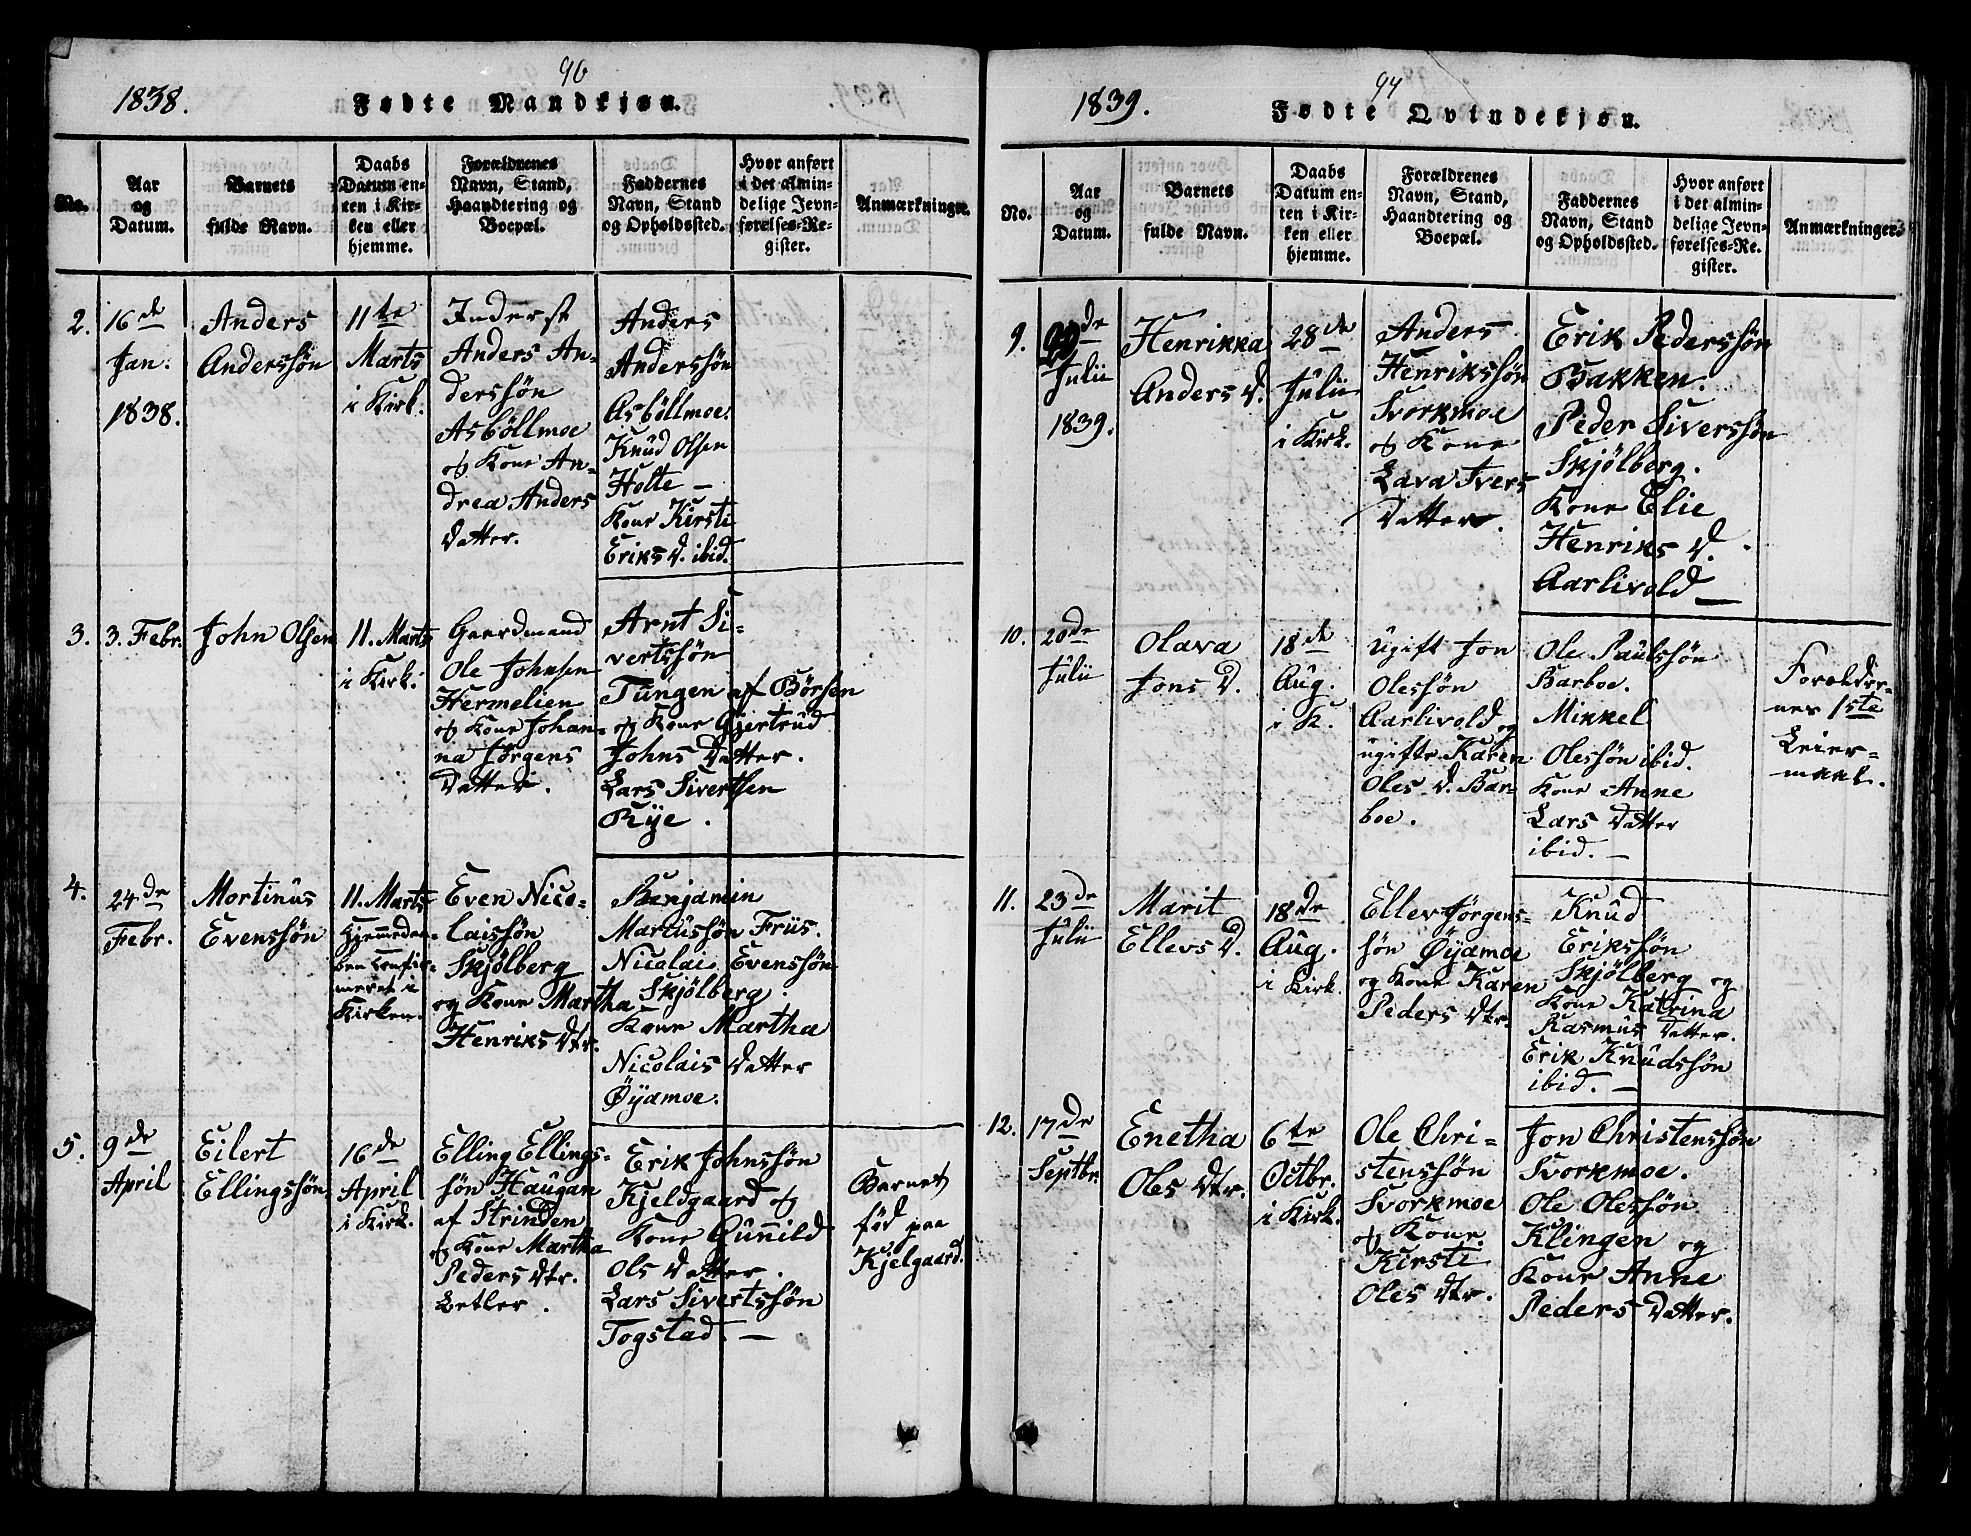 96
1838.
Fødte Mandkjøn.
No.
Aar
og
Datum.
Barnets
fulde Navn.
Daabs
Datum en-
ten i Kir-
ken eller
hjemme.
Forældrenes
Navn, Stand,
Haandtering og
Boepæl.
Faddernes
Navn, Stand
og Opholdssted.
Hvor anført
i det almin-
delige Jevn-
førelses-Re-
gister.
Anmærkninger.
2.
16de
Jan:
1838.
Anders
Anderssön
11te
Marts
i Kirk:
Inderst
Anders An-
derssön
Asböllmoe
og Kone An-
drea Anders
Datter.
Anders
Anderssön
Asböllmoe.
Knud Olsen
Holte —
Kone Kirsti
Eriks D. ibid.
3.
3. Febr.
John Olsen
11. Marts
i Kirk.
Gaardmand
Ole Johnsen
Hermelien
og Kone Johan-
na Jörgens
Datter.
Arnt Si-
vertssön
Tungen af Börsen
og Kone Gjertrud
Johns Datter.
Lars Sivertsen
Rye.
4.
24de
Febr.
Mortinus
Evenssön
11. Marts
Hjemmedøa-
ben Confir-
meret i
Kirken.
Even Nico-
laissön
Skjölberg
og Kone Martha
Henriks Dtr.
Benjamin
Marcussön Friis.
Nicolai Evenssön
Skjölberg.
Kone Martha
Nicolais Datter
Øyamoe.
5.
9de
April
Eilert
Ellingssön
16de
April
i Kirk.
Elling Ellings-
sön Haugan
af Strinden
og Kone Martha
Peders Dtr.
Letler.
Erik Johnssön
Kjeldgaard og
Kone Gunnild
Ols Datter.
Lars Sivertssön
Togstad. —
Barnet
föd paa
Kjelgaard.
94
1839.
Fødte Qvindekjøn.
No.
Aar
og
Datum.
Barnets
fulde Navn.
Daabs
Datum en-
ten i Kir-
ken eller
hjemme.
Forældrenes
Navn, Stand,
Haandtering og
Boepæl.
Faddernes
Navn, Stand
og Opholdssted.
Hvor anført
i det almin-
delige Jevn-
førelses-Re-
gister.
Anmærkninger.
9.
Julii
1839.
Henrikka
Anders D.
28de
Julii
i Kirk.
Anders
Henrikssön
Svorkmoe
og Kone
Lava Ivers
Datter.
Erik Pederssön
Bakken.
Peder Siverssön
Skjölberg.
Kone Elie
Henriks D.
Aarlivold —
10.
20de
Julii
Olava
Jons D.
18de
Aug.
i K.
Ugift Jon
Olessön
Aarlivold og
ugifte Karen
Oles D. Bar
boe.
Ole Paulssön
Barboe.
Mikkel
Olessön ibid.
Kone Anne
Lars Datter
ibid. —
Forælder-
nes 1ste
Leier-
maal.
11.
23de
Julii
Marit
Ellevs D.
18de
Aug.
i Kirk.
Ellev Jörgens-
sön Øyamoe
og Kone Karen
Peders Dtr.
Knud
Erikssön
Skjölberg og
Kone Katrina
Rasmus Datter.
Erik Knudssön
ibid. —
12.
17de
Septbr.
Enetha
Oles Dtr.
6te
Octbr.
i Kirk.
Ole Chri-
stenssön
Svorkmoe
og Kone
Kirsti
Oles Dtr.
Jon Christenssön
Svorkmoe.
Ole Olessön
Klingen og
Kone Anne
Peders Datter.